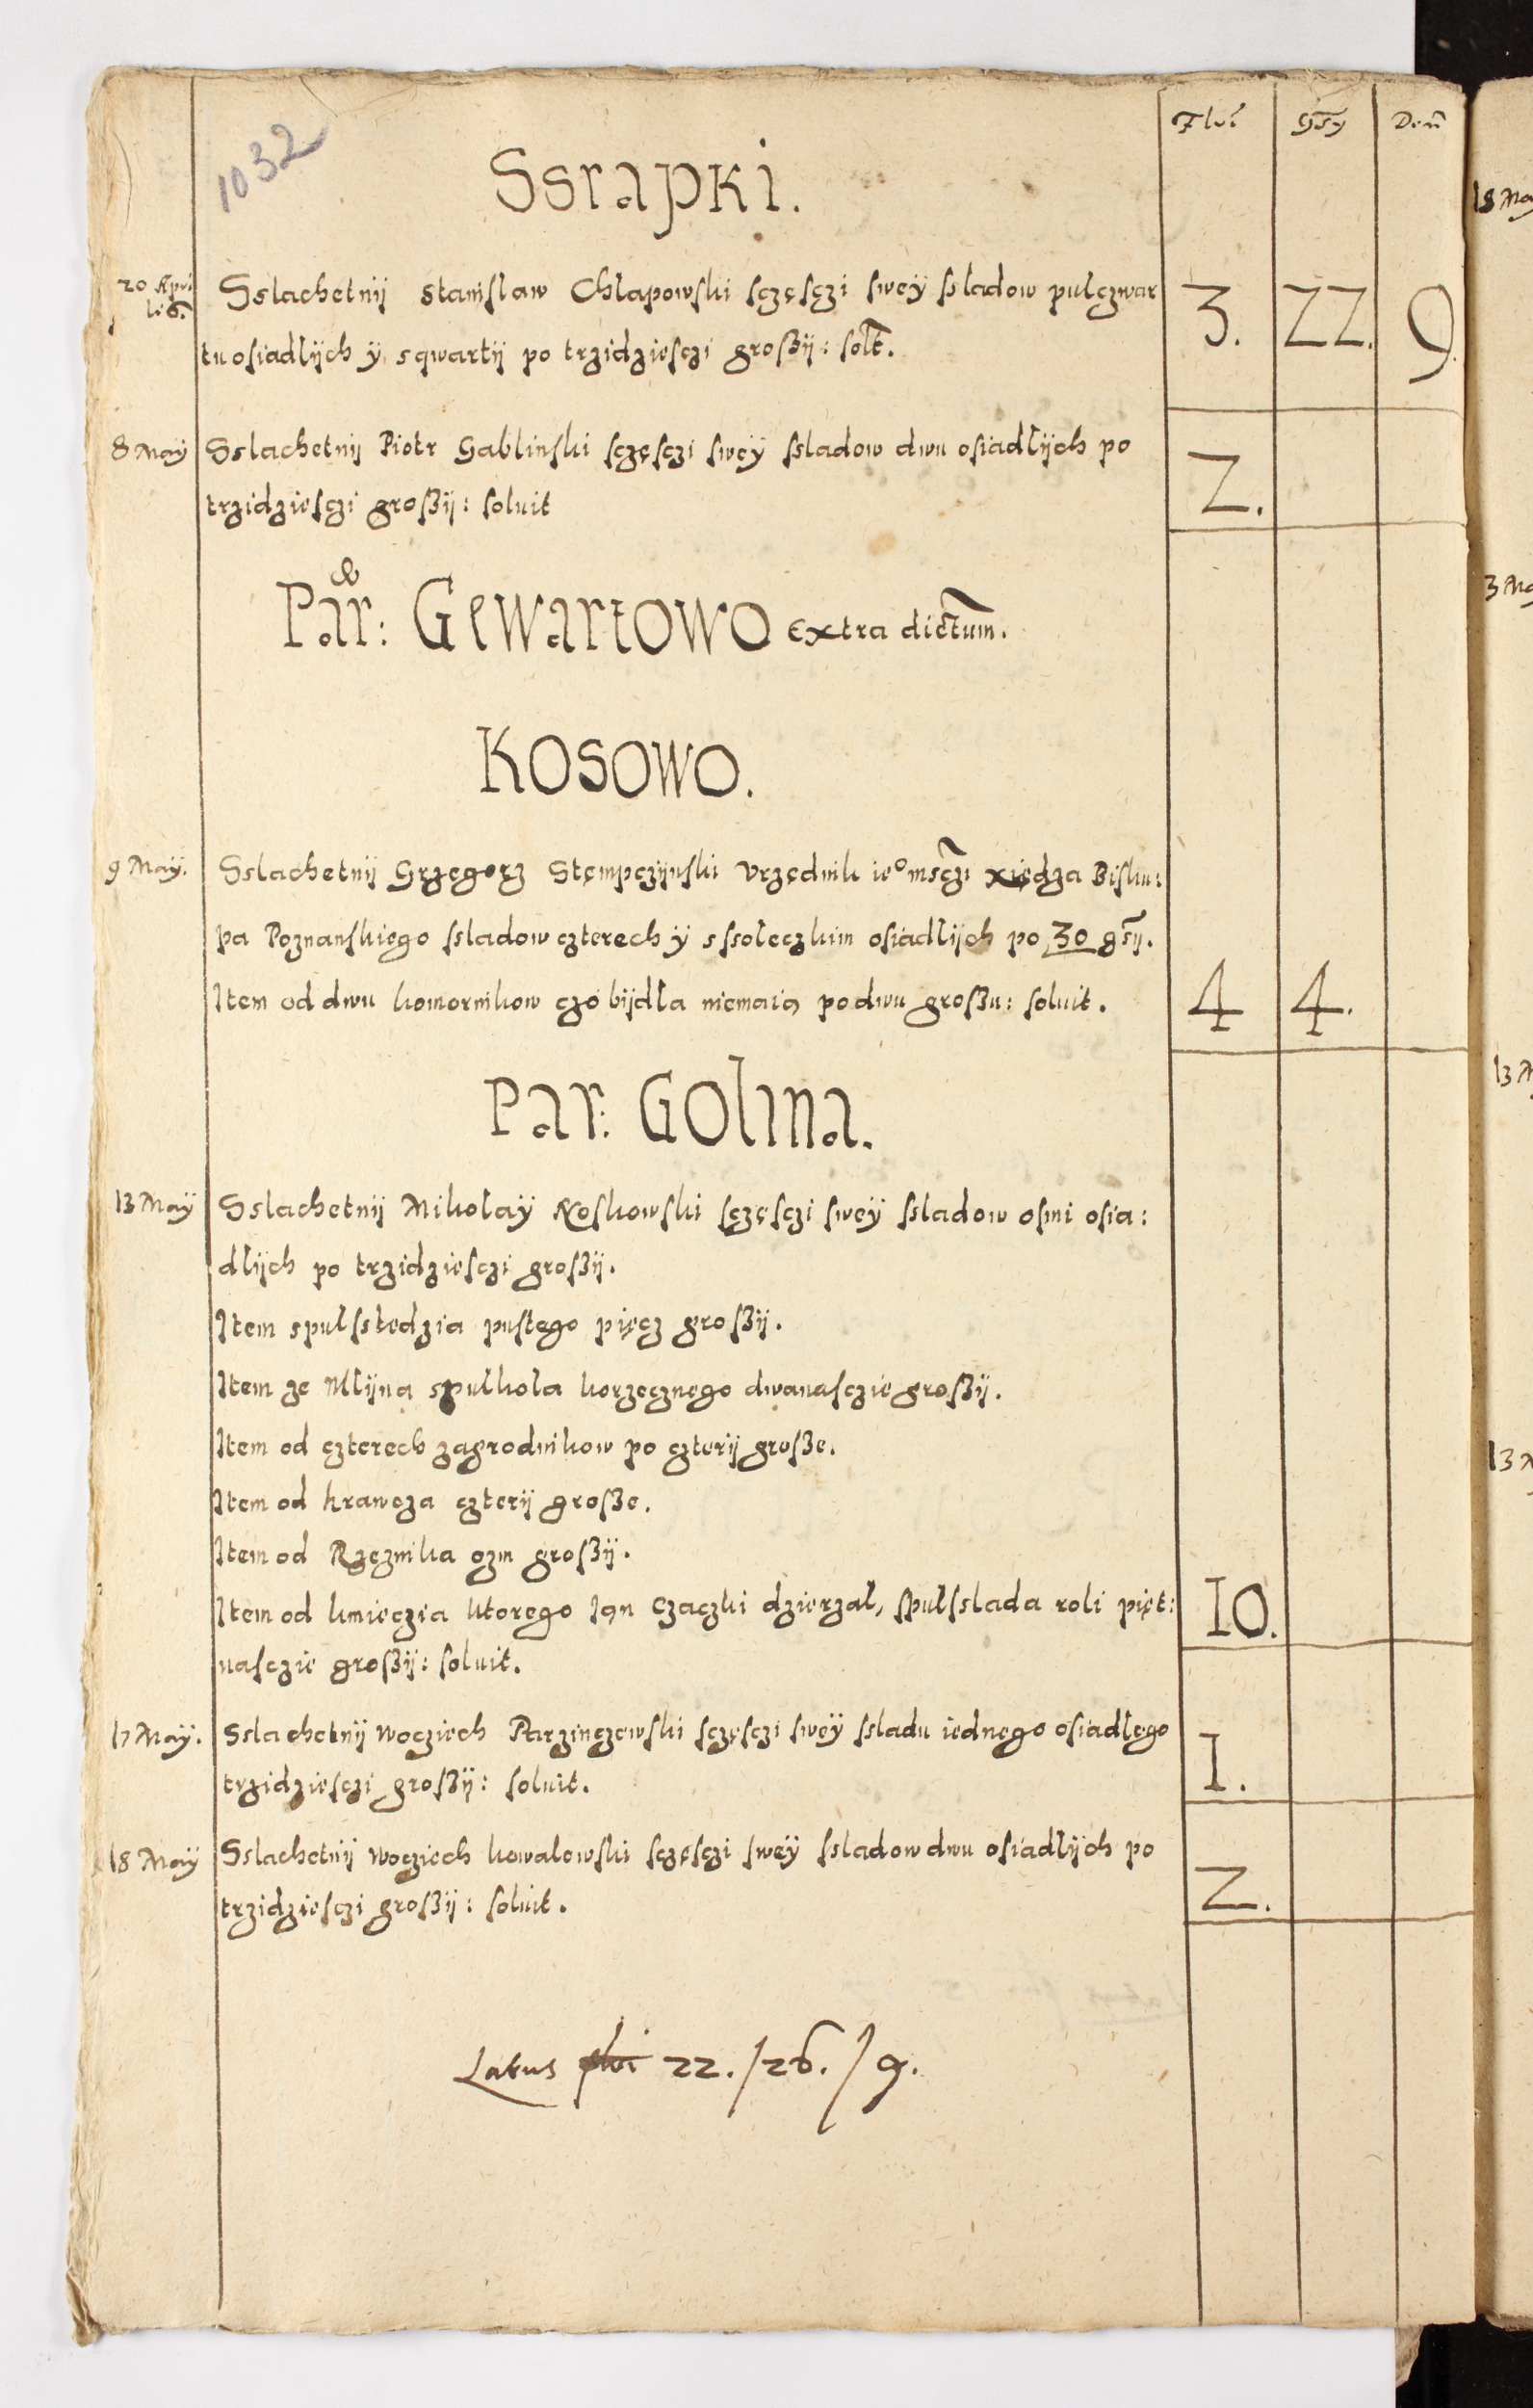 1032
Flor̃ Gr̃sy Den̄
Ssrapki.
20 Apri
lis. Sslachetnij Stanislaw Chlapowski sczęsczi swey ssladow pulczwar 3. 22. 9.
tu osiadlijch ÿ sqwartij po trzidziesczi groszij: solt̃.
8 Maÿ Sslachetnij Piotr Gablinski sczęsczi sweÿ ssladow dwu osiadlijch po 2.
trzidziesczi groszij: soluit
Par: Gewartowo extra dictum̃.
Kosowo.
9 Maÿ. Sslachetnij Grzegorz Stempczijnski Vrzędnik ieº msczi xiędza Bisku:
pa Poznanskiego ssladow czterech ÿ s ssoleczkim osiadlijch po 30 gr̃sij.
Item od dwu komornikow czo bijdła niemaią po dwu groszu: soluit. 4 4.
Par: Golina.
13 Maÿ Sslachetnij Mikolaÿ Roskowski sczęsczi sweÿ ssladow osmi osia:
dlijch po trzidziesczi groszij.
Item spulssledzia pustego pięcz groszij.
Item ze Mlijna spulkola korzecznego dwanasczie groszij.
Item od czterech zagrodnikow po czterij grosze.
Item od krawcza czterij grosze.
Item od Rzeznika ozm groszij.
Item od kmieczia ktorego Jan Czaczki dzierzal, spulsslada roli pięt: 10.
nasczie groszij: soluit.
17 Maÿ. Sslachetnij Wocziech Parzinczewski sczęsczi sweÿ ssladu iednego osiadlego 1.
trzidziesczi groszij: soluit.
18 Maÿ Sslachetnij Wocziech kowalewski sczęsczi sweÿ ssladow dwu osiadlijch po 2.
trzidziesczi groszij: soluit.
Latus floi 22./26./9.